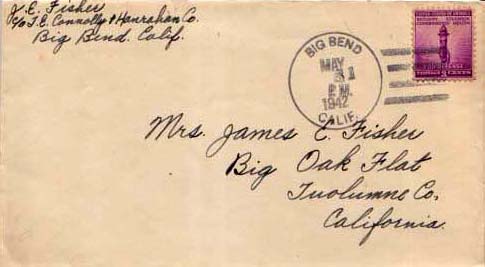 J. E. Fisher
c/o T. E. Connolly & Hanrahan Co.
Big Bend. Calif.
BIG BEND
MAY
31
P.M.
1942
CALIF.
UNITED STATES OF AMERICA
3 CENTS
Mrs. James E. Fisher
Big Oak Flat
Tuolumne Co,
California.